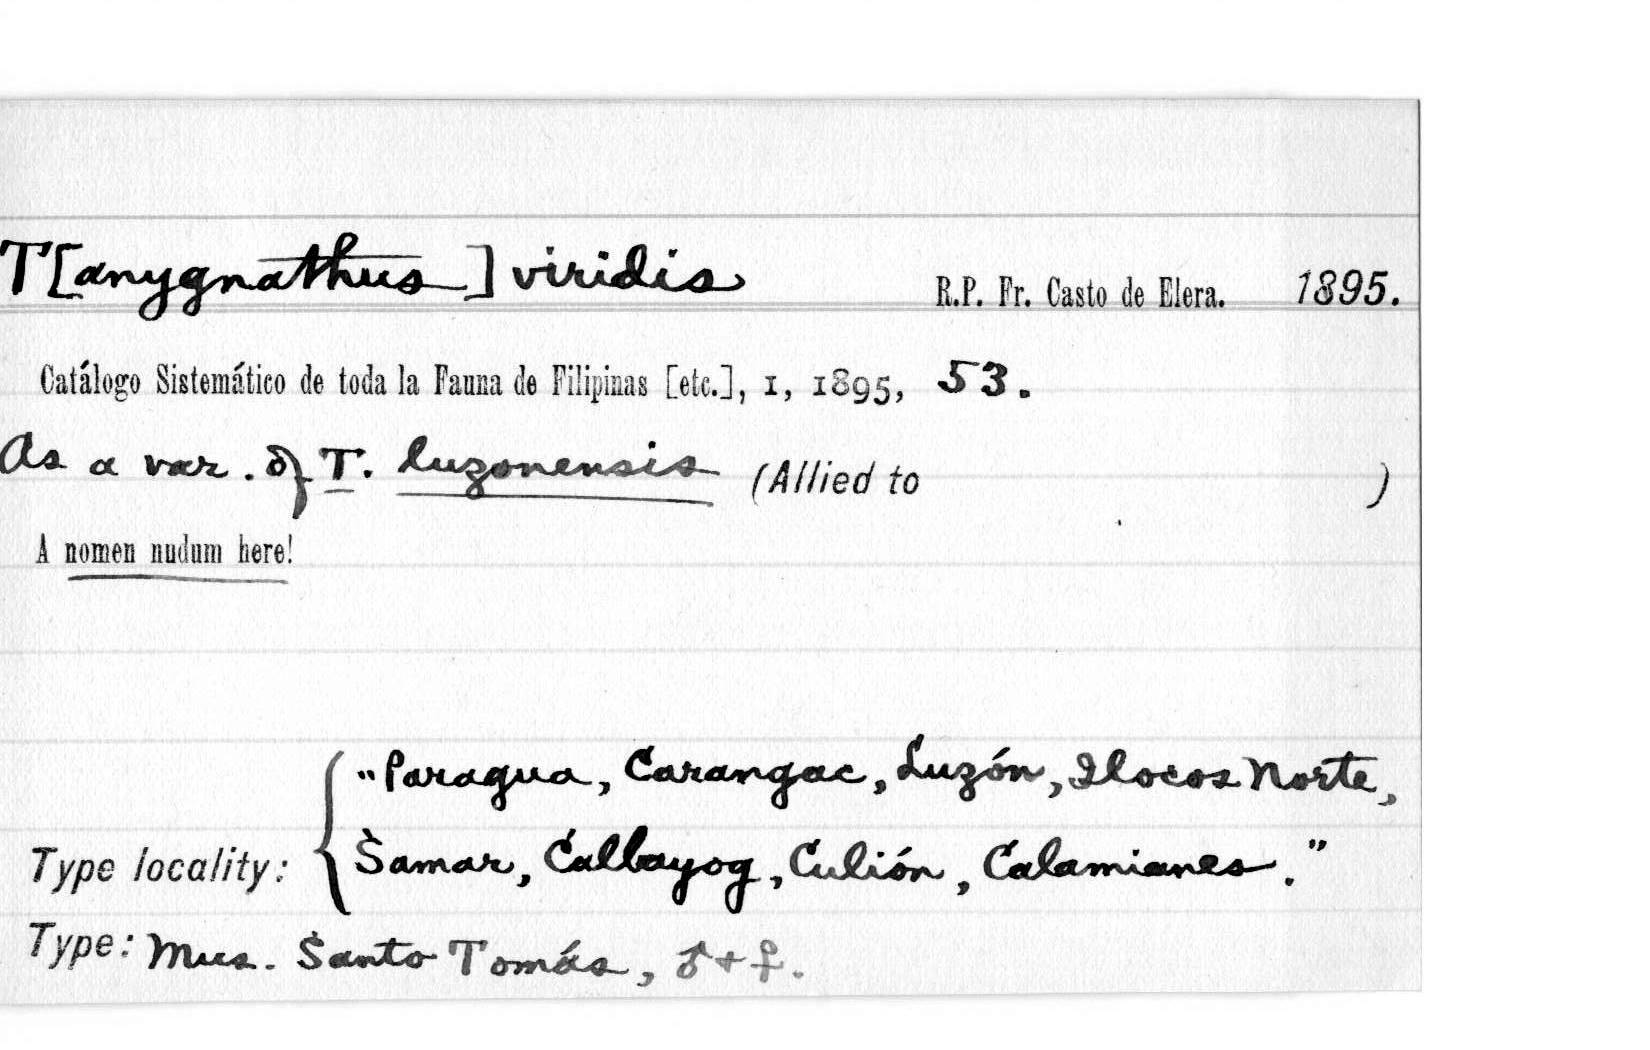 T[anygnathus] viridis R.P. Fr. Casto de Elera. 1895.
Catálogo Sistemático de toda la Fauna de Filipinas [etc.], I, 1895, 53.
As a var. of T. luzonensis (Allied to )
A nomen nudum here!
"Paragua, Carangac, Luzón, Ilocos Norte,
Type locality: { Samar, Callayog, Culión, Calamianes."
Type: Mus. Santo Tomás, ♂ + ♀.